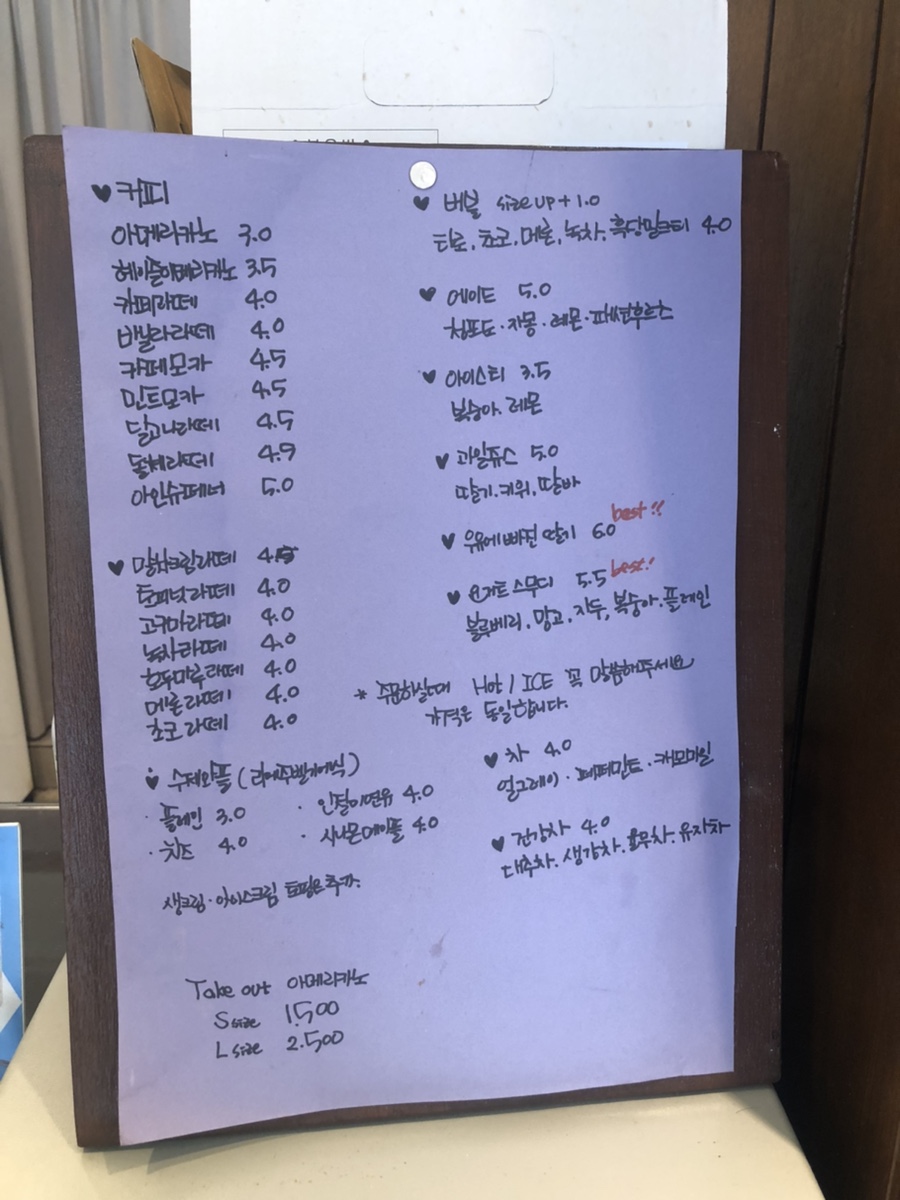 ♥ 커피
아메리카노 3.0
헤이즐아메리카노 3.5
카페라떼 4.0
바닐라라떼 4.0
카페모카 4.5
민트모카 4.5
달고나라떼 4.5
돌체라떼 4.9
아인슈페너 5.0
♥ 말차크림라떼 4.5
토피넛라떼 4.0
고구마라떼 4.0
녹차라떼 4.0
호두마루라떼 4.0
메론라떼 4.0
초코라떼 4.0
♥ 수제와플 (리에주벨기에식)
· 플레인 3.0 · 인절미연유 4.0
· 치즈 4.0 · 시나몬메이플 4.0
생크림·아이스크림 토핑은 추가.
Take out 아메리카노
S size 1.500
L size 2.500
♥ 버블 size up + 1.0
타로, 초코, 메론, 녹차, 흑당밀크티 4.0
♥ 에이드 5.0
청포도·자몽·레몬·패션후르츠
♥ 아이스티 3.5
복숭아, 레몬
♥ 과일쥬스 5.0
딸기, 키위, 딸바
♥ 우유에빠진 딸기 6.0 best!!
♥ 요거트스무디 5.5 best!!
블루베리, 망고, 자두, 복숭아, 플레인
* 주문하실때 Hot / ICE 꼭 말씀해주세요
가격은 동일합니다.
♥ 차 4.0
얼그레이·페퍼민트·캐모마일
♥ 건강차 4.0
대추차, 생강차, 율무차, 유자차